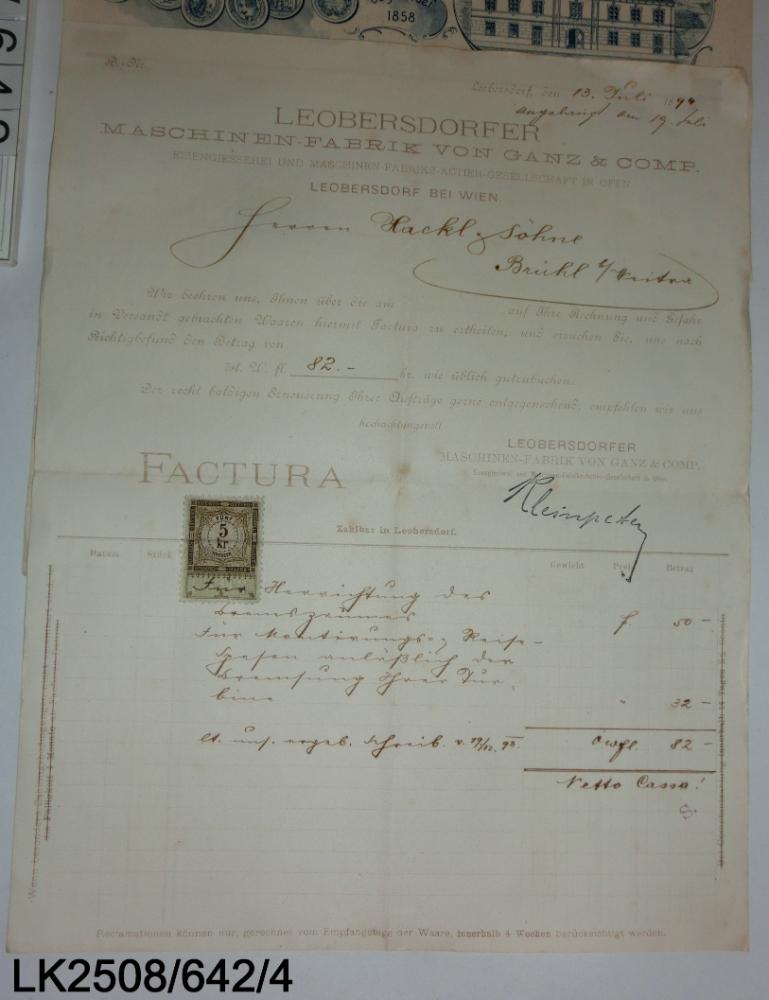 1858
B.-Nr.
Leobersdorf, den 13. Juli 1894
angebracht am 19. Juli
LEOBERSDORFER
MASCHINEN-FABRIK VON GANZ & COMP.
EISENGIESSEREI UND MASCHINEN-FABRIKS-ACTIEN-GESELLSCHAFT IN OFEN
LEOBERSDORF BEI WIEN.
Herren Hackl & Söhne
Brühl b/Weitra
Wir beehren uns, Ihnen über die am auf Ihre Rechnung und Gefahr
in Versandt gebrachten Waaren hiermit Factura zu ertheilen, und ersuchen Sie, uns nach
Richtigbefund den Betrag von
öst. W. fl. 82.- kr. wie üblich gutzubuchen.
Der recht baldigen Erneuerung Ihrer Aufträge gerne entgegensehend, empfehlen wir uns
hochachtungsvoll
LEOBERSDORFER
MASCHINEN-FABRIK VON GANZ & COMP.
FACTURA
Kleinpeter
Zahlbar in Leobersdorf.
5
kr
Datum Stück Gewicht Preis Betrag
Für Herrichtung des
Bremszaumes f 50 -
Für Montirungs- & Reise-
spesen anläßlich der
Bremsung Ihrer Tur-
bine " 32 -
lt. uns. ergeb. Schreib. v. öwfl. 82 -
Netto Cassa!
S.
Reclamationen können nur, gerechnet vom Empfangstage der Waare, innerhalb 4 Wochen berücksichtigt werden.
LK2508/642/4